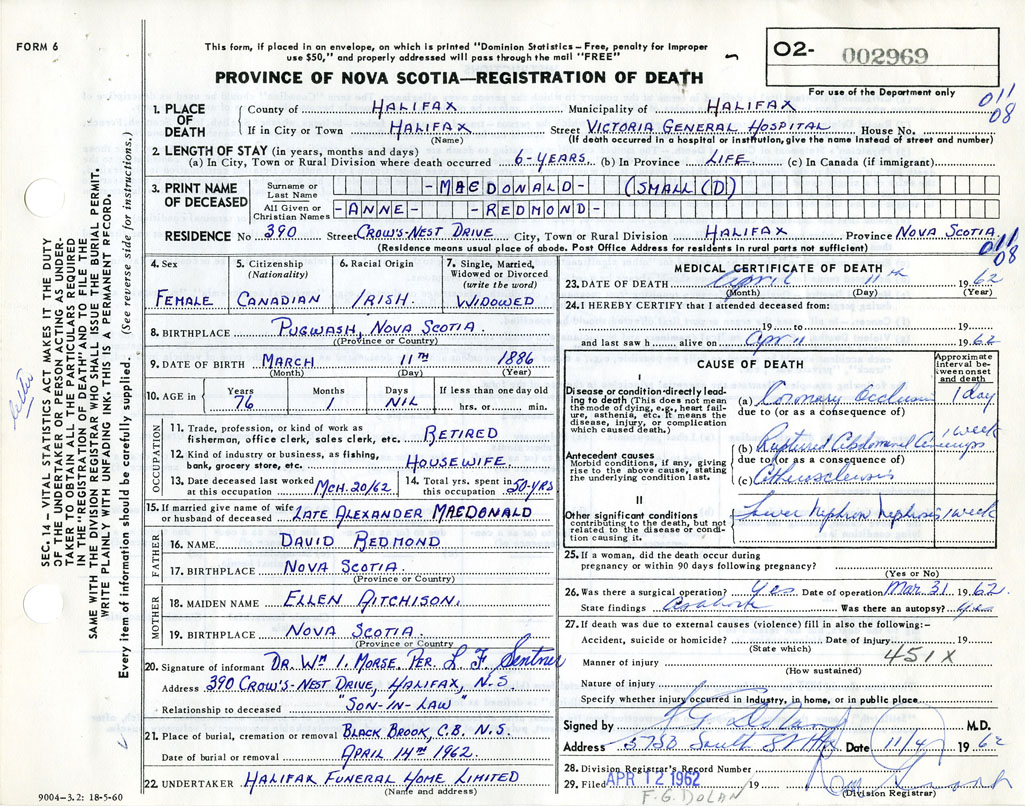 FORM 6
This form, if placed in an envelope, on which is printed "Dominion Statistics – Free, penalty for improper
use $50," and properly addressed will pass through the mail "FREE"
PROVINCE OF NOVA SCOTIA—REGISTRATION OF DEATH
02- 002969
For use of the Department only
011
08
1. PLACE OF DEATH
County of HALIFAX Municipality of HALIFAX
If in City or Town HALIFAX Street VICTORIA GENERAL HOSPITAL House No.
(Name) (If death occurred in a hospital or institution, give the name instead of street and number)
2. LENGTH OF STAY (in years, months and days)
(a) In City, Town or Rural Division where death occurred 6-YEARS (b) In Province LIFE (c) In Canada (if immigrant)
3. PRINT NAME OF DECEASED
Surname or Last Name -MACDONALD- (SMALL (D)
All Given or Christian Names -ANNE- -REDMOND-
RESIDENCE No 390 Street CROW'S-NEST DRIVE City, Town or Rural Division HALIFAX Province NOVA SCOTIA
(Residence means usual place of abode. Post Office Address for residents in rural parts not sufficient)
011
08
4. Sex FEMALE
5. Citizenship (Nationality) CANADIAN
6. Racial Origin IRISH.
7. Single, Married, Widowed or Divorced (write the word) WIDOWED
8. BIRTHPLACE PUGWASH, NOVA SCOTIA.
(Province or Country)
9. DATE OF BIRTH MARCH 11TH 1886
(Month) (Day) (Year)
10. AGE in Years 76 Months 1 Days NIL If less than one day old
hrs. or min.
OCCUPATION
11. Trade, profession, or kind of work as
fisherman, office clerk, sales clerk, etc. RETIRED
12. Kind of industry or business, as fishing,
bank, grocery store, etc. HOUSEWIFE.
13. Date deceased last worked
at this occupation MCH.20/62
14. Total yrs. spent in
this occupation 50-YRS
15. If married give name of wife
or husband of deceased LATE ALEXANDER MACDONALD
FATHER
16. NAME DAVID REDMOND
17. BIRTHPLACE NOVA SCOTIA.
(Province or Country)
MOTHER
18. MAIDEN NAME ELLEN AITCHISON.
19. BIRTHPLACE NOVA SCOTIA.
(Province or Country)
20. Signature of informant DR. WM I. MORSE. PER. L. F. Sentner
Address 390 CROW'S-NEST DRIVE, HALIFAX, N.S.
Relationship to deceased "SON-IN-LAW"
21. Place of burial, cremation or removal BLACK BROOK, C.B. N.S.
Date of burial or removal APRIL 14TH 1962.
22. UNDERTAKER HALIFAX FUNERAL HOME LIMITED
(Name and address)
9004-3.2: 18-5-60
MEDICAL CERTIFICATE OF DEATH
23. DATE OF DEATH April 11th 1962
(Month) (Day) (Year)
24. I HEREBY CERTIFY that I attended deceased from:
19 to 19
and last saw h alive on April 1962
CAUSE OF DEATH
Approximate interval between onset and death
I
Disease or condition directly leading to death (This does not mean the mode of dying, e.g., heart failure, asthenia, etc. It means the disease, injury, or complication which caused death.)
(a) Coronary Occlusion 1 day
due to (or as a consequence of)
Antecedent causes
Morbid conditions, if any, giving rise to the above cause, stating the underlying condition last.
(b) Ruptured Abdominal 1 week
due to (or as a consequence of)
(c)
II
Other significant conditions
contributing to the death, but not related to the disease or condition causing it.
Lower Nephron Nephrosis 1 week
25. If a woman, did the death occur during
pregnancy or within 90 days following pregnancy?
(Yes or No)
26. Was there a surgical operation? Yes Date of operation Mar 31 1962.
State findings Was there an autopsy?
27. If death was due to external causes (violence) fill in also the following:-
Accident, suicide or homicide? Date of injury 19
(State which)
451X
Manner of injury
(How sustained)
Nature of injury
Specify whether injury occurred in industry, in home, or in public place
Signed by M.D.
Address 5753 South St Date 11/4 1962
28. Division Registrar's Record Number
29. Filed APR 12 1962
(Division Registrar)
F. G. DOLAN
SEC. 14 – VITAL STATISTICS ACT MAKES IT THE DUTY
OF THE UNDERTAKER OR PERSON ACTING AS UNDER-
TAKER TO OBTAIN ALL THE PARTICULARS REQUIRED
IN THE "REGISTRATION OF DEATH" AND TO FILE THE
SAME WITH THE DIVISION REGISTRAR WHO SHALL ISSUE THE BURIAL PERMIT.
WRITE PLAINLY WITH UNFADING INK. THIS IS A PERMANENT RECORD.
Every item of information should be carefully supplied. (See reverse side for instructions.)
letter